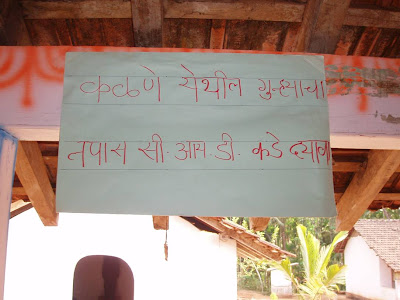 कळणे येथील गुन्ह्याचा
तपास सी.आय.डी. कडे द्यावा